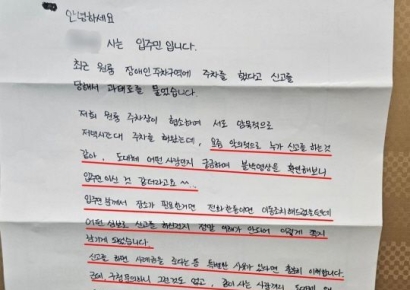 안녕하세요
사는 입주민 입니다.
최근 원룸 장애인 주차구역에 주차를 했다고 신고를
당해서 과태료를 물었습니다.
저희 원룸 주차장이 협소하여 서로 암묵적으로
저녁시간대 주차를 해왔는데, 요즘 악의적으로 누가 신고를 하는것
같아, 도대체 어떤 사람인지 궁금하여 블박영상을 확인해보니
입주민 이신 것 같더라고요 ^^.
입주민 님께서 장소가 필요한거면 전화 한통이면 이동조치 해드렸을텐데
어떤 심보로 신고를 하신건지 정말 이해가 안되어 이렇게 쪽지
남기게 되었습니다.
신고를 하면 사례금을 준다는 등 특별한 사유가 있다면 충분히 이해합니다.